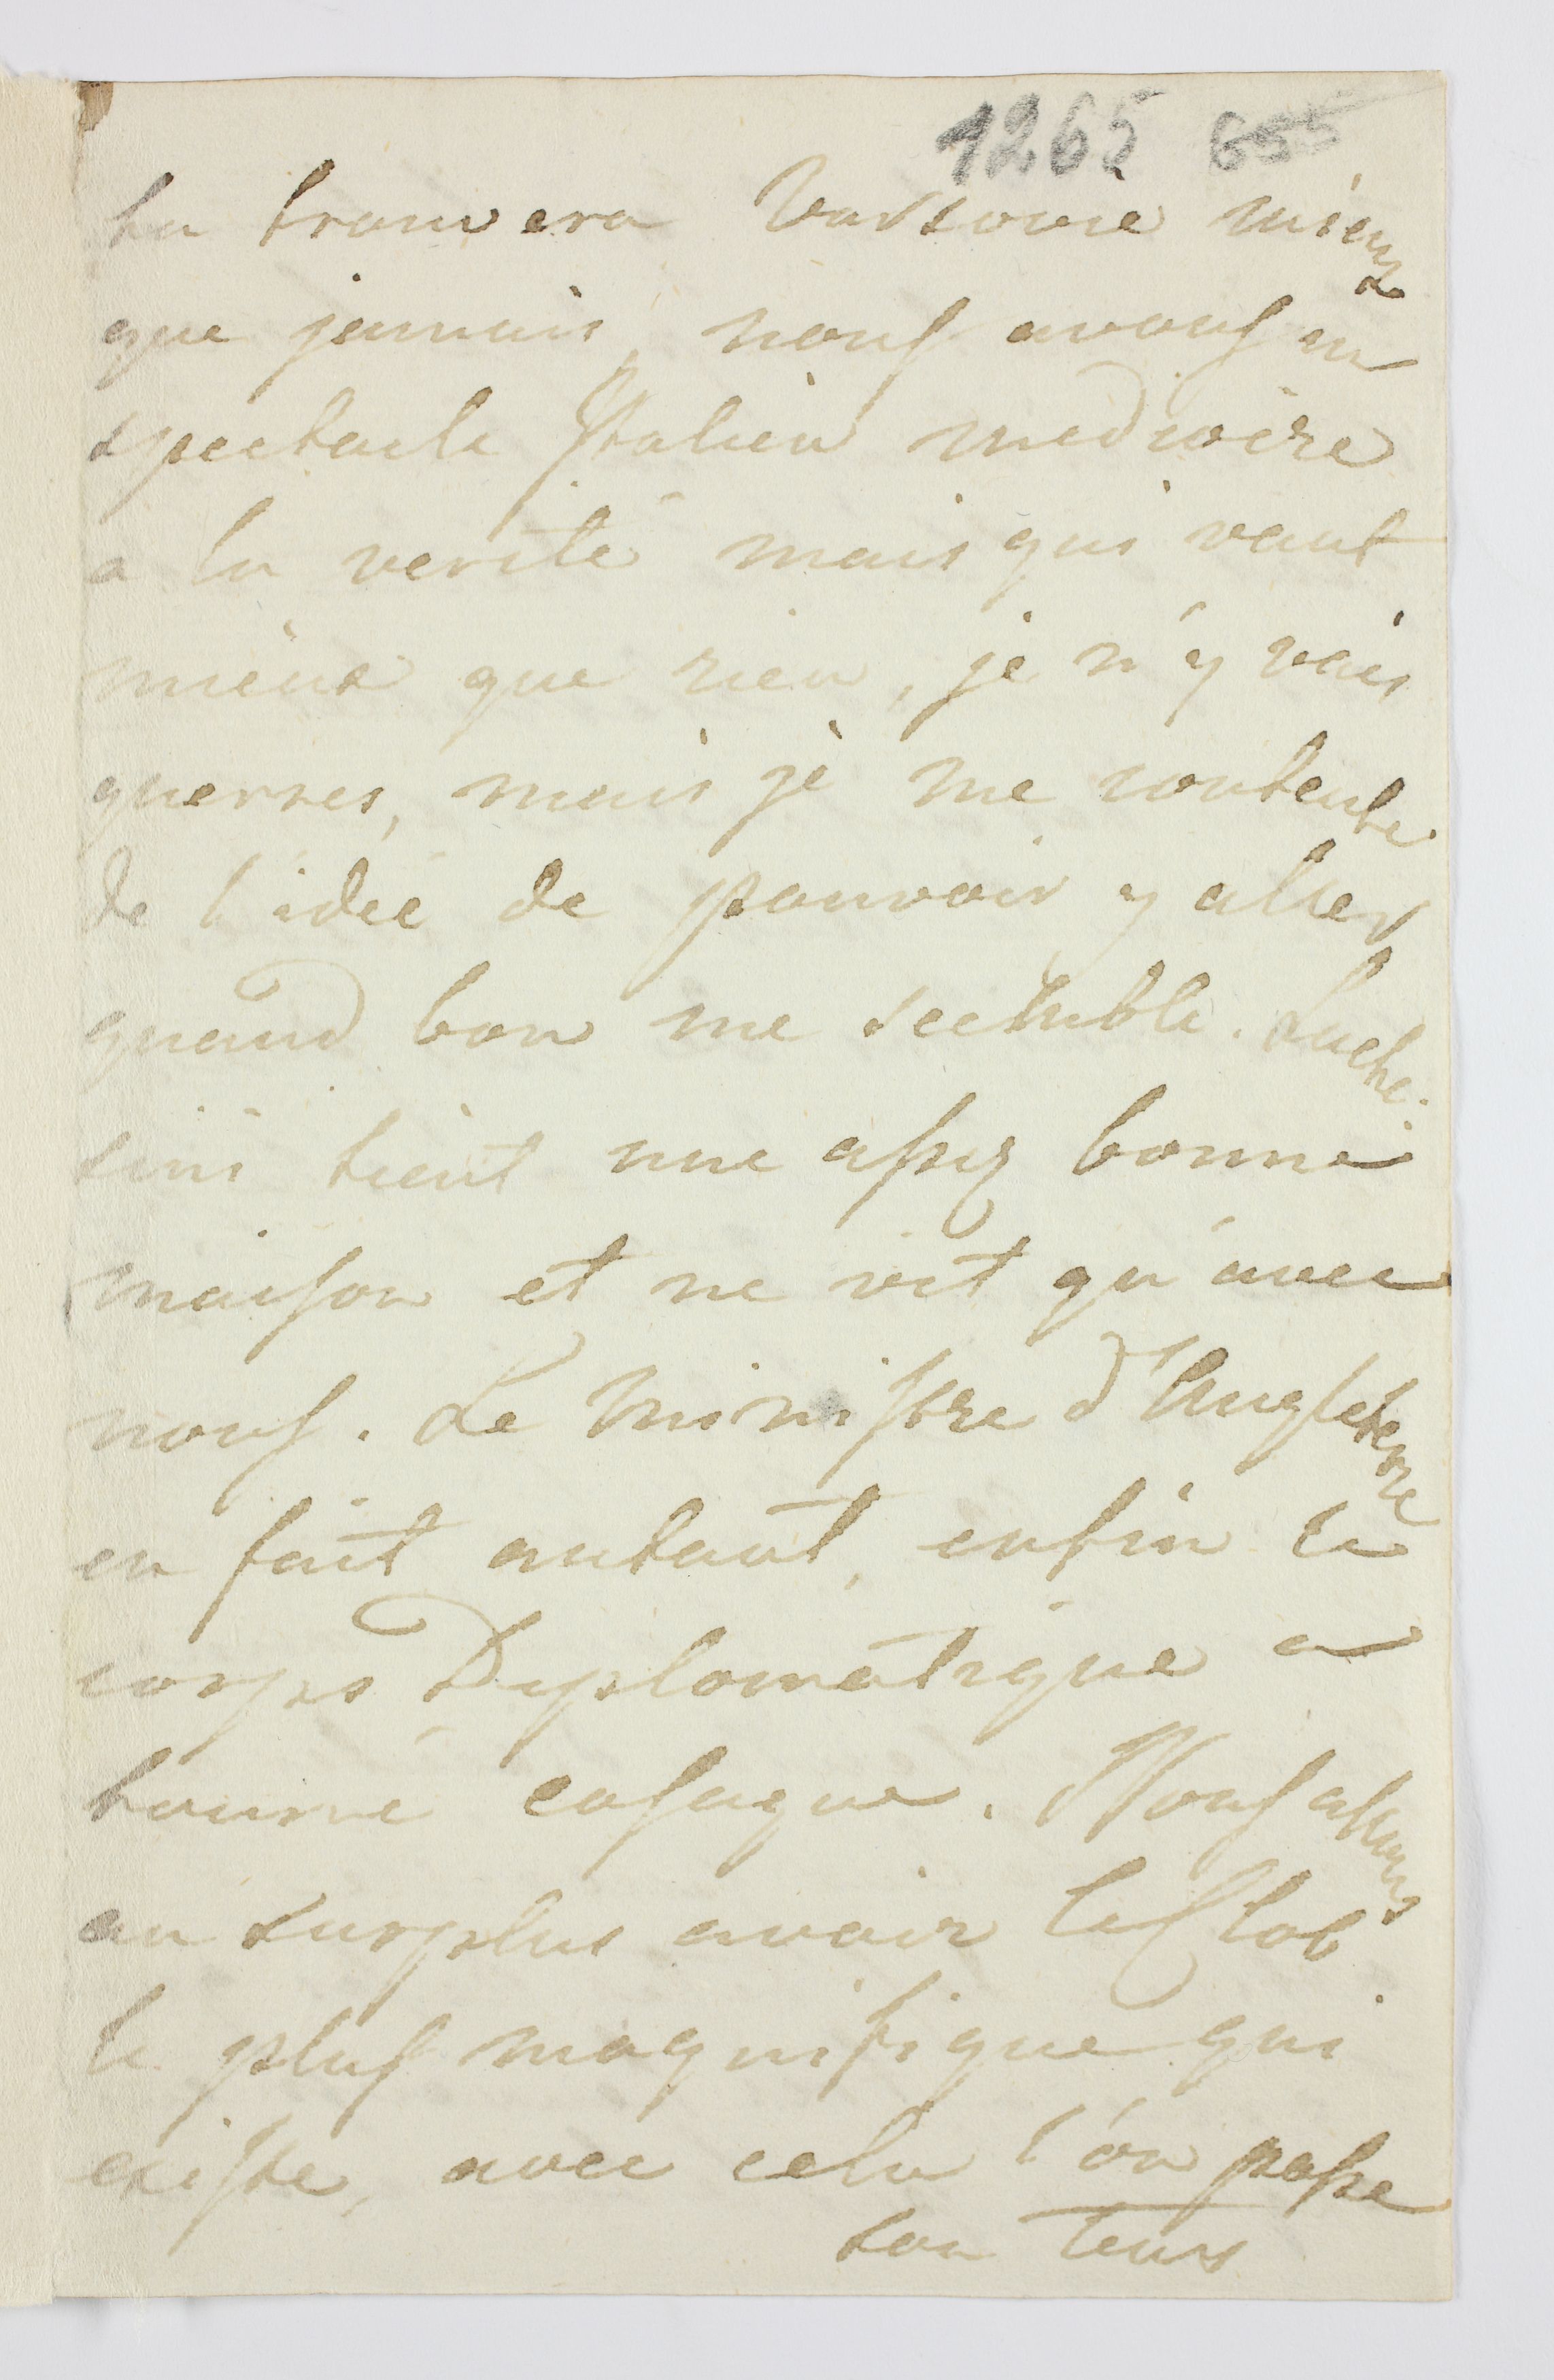 1265 655
tu trouvera Varsovie mieux
que jamais, nous avons un
spectacle Italien mediocre
a la verité mais qui vaut
mieux que rien, je n'y vais
guerres, mais je me contente
de l'idée de pouvoir y aller
quand bon me semble. Luche-
sini tient une assez bonne
maison et ne vit qu'avec
nous. Le Ministre d'Angleterre
en fait autant, enfin le
corps Diplomatique a
tourné casaque. Nous allons
au surplus avoir le Clob
le plus magnifique qui
existe, avec cela l'on passe
son tems